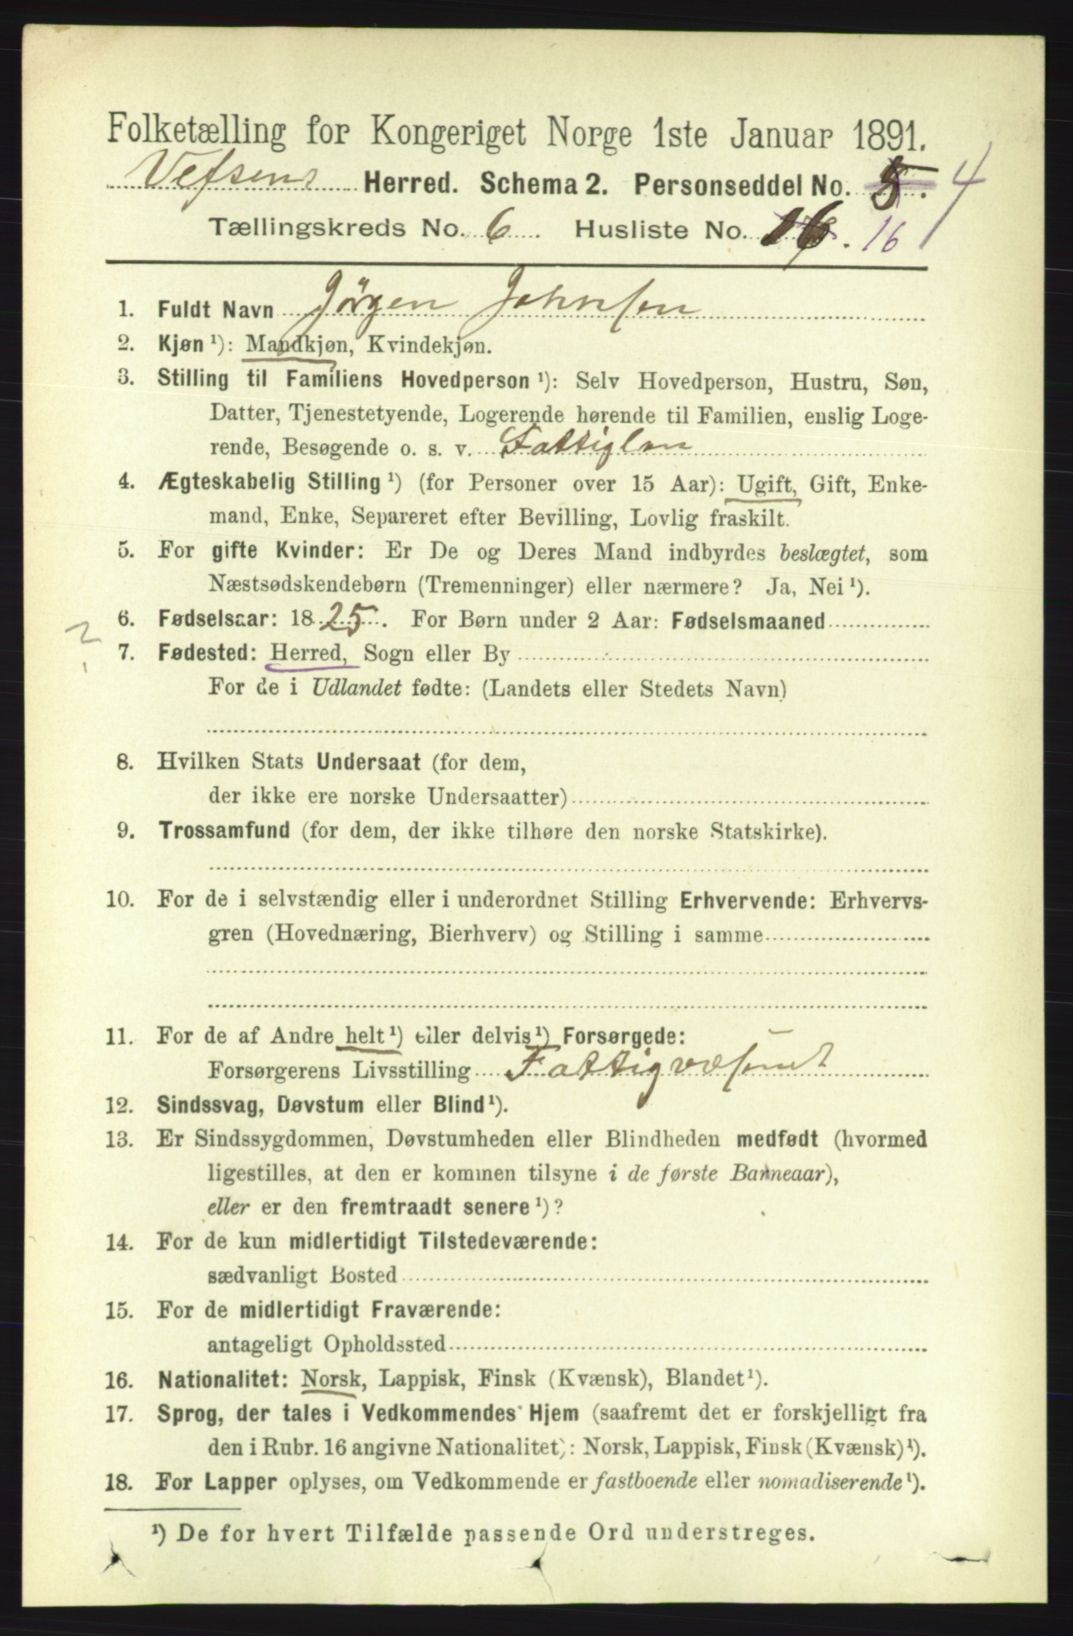 Folketælling for Kongeriget Norge 1ste Januar 1891.
Vefsens Herred. Schema 2. Personseddel No. 5. 4
Tællingskreds No. 6. Husliste No. 16. 16
1. Fuldt Navn Jørgen Johnsen
2. Kjøn ¹): Mandkjøn, Kvindekjøn.
3. Stilling til Familiens Hovedperson ¹): Selv Hovedperson, Hustru, Søn,
Datter, Tjenestetyende, Logerende hørende til Familien, enslig Loge-
rende, Besøgende o. s. v. Fattiglem
4. Ægteskabelig Stilling ¹) (for Personer over 15 Aar): Ugift, Gift, Enke-
mand, Enke, Separeret efter Bevilling, Lovlig fraskilt.
5. For gifte Kvinder: Er De og Deres Mand indbyrdes beslægtet, som
Næstsødskendebørn (Tremenninger) eller nærmere? Ja, Nei ¹).
6. Fødselsaar: 1825. For Børn under 2 Aar: Fødselsmaaned
?
7. Fødested: Herred, Sogn eller By
For de i Udlandet fødte: (Landets eller Stedets Navn)
8. Hvilken Stats Undersaat (for dem,
der ikke ere norske Undersaatter)
9. Trossamfund (for dem, der ikke tilhøre den norske Statskirke).
10. For de i selvstændig eller i underordnet Stilling Erhvervende: Erhvervs-
gren (Hovednæring, Bierhverv) og Stilling i samme
11. For de af Andre helt ¹) eller delvis ¹) Forsørgede:
Forsørgerens Livsstilling Fattigvæsenet
12. Sindssvag, Døvstum eller Blind ¹).
13. Er Sindssygdommen, Døvstumheden eller Blindheden medfødt (hvormed
ligestilles, at den er kommen tilsyne i de første Barneaar),
eller er den fremtraadt senere ¹)?
14. For de kun midlertidigt Tilstedeværende:
sædvanligt Bosted
15. For de midlertidigt Fraværende:
antageligt Opholdssted
16. Nationalitet: Norsk, Lappisk, Finsk (Kvænsk), Blandet ¹).
17. Sprog, der tales i Vedkommendes Hjem (saafremt det er forskjelligt fra
den i Rubr. 16 angivne Nationalitet): Norsk, Lappisk, Finsk (Kvænsk) ¹).
18. For Lapper oplyses, om Vedkommende er fastboende eller nomadiserende ¹).
¹) De for hvert Tilfælde passende Ord understreges.